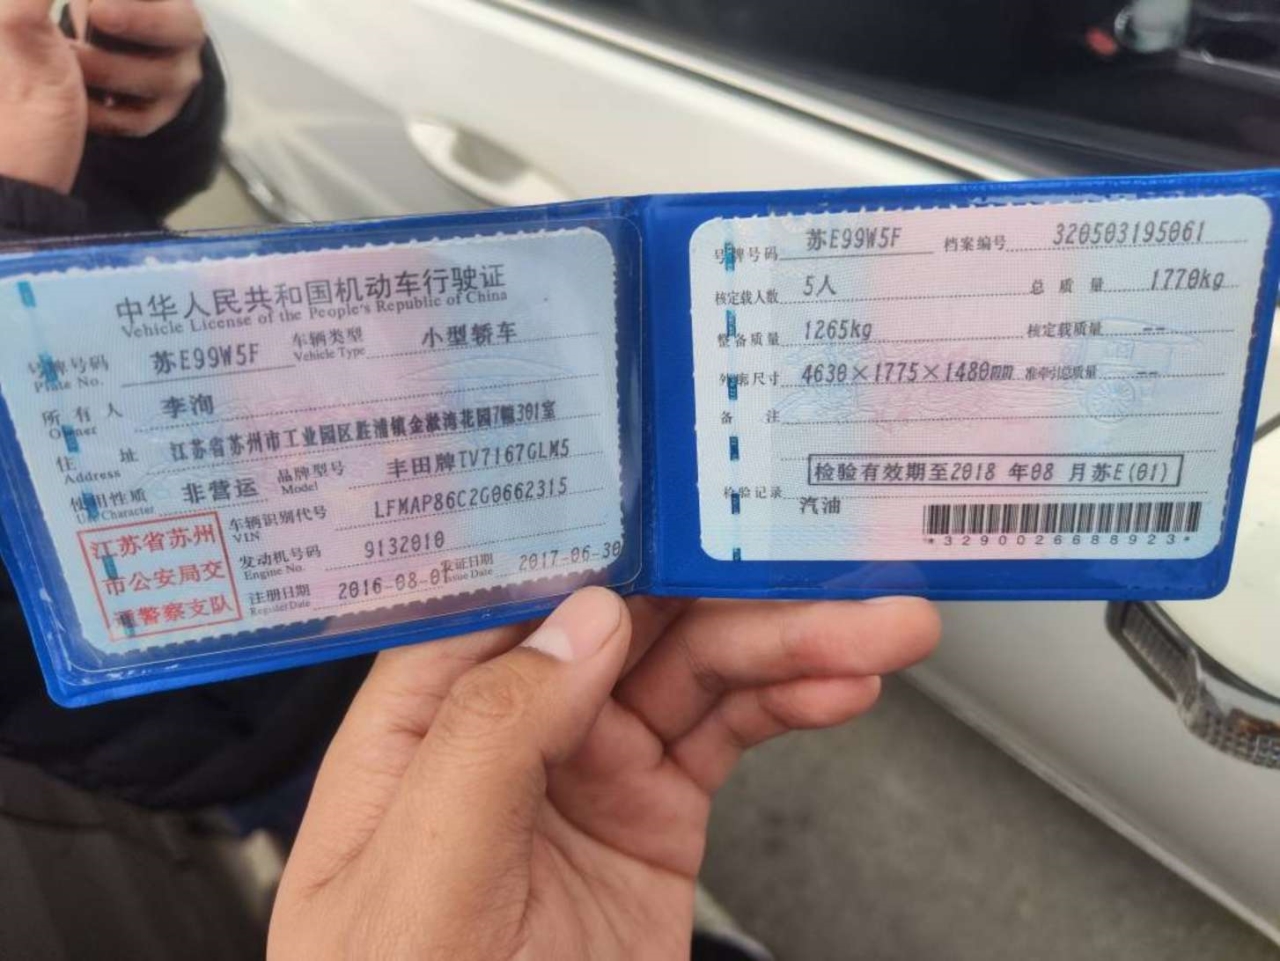 中华人民共和国机动车行驶证
Vehicle License of the People's Republic of China
号牌号码 苏E99W5F 车辆类型 小型轿车
Plate No. Vehicle Type
所有人 李洵
Owner
住址 江苏省苏州市工业园区胜浦镇金淞湾花园7幢301室
Address
使用性质 非营运 品牌型号 丰田牌TV7167GLM5
Use Character Model
车辆识别代号 LFMAP86C2G0662315
VIN
发动机号码 9132010
Engine No.
注册日期 2016-08-01 发证日期 2017-06-30
Register Date Issue Date
江苏省苏州
市公安局交
通警察支队
号牌号码 苏E99W5F 档案编号 320503195061
核定载人数 5人 总质量 1770kg
整备质量 1265kg 核定载质量 --
外廓尺寸 4630×1775×1480mm 准牵引总质量 --
备注
检验有效期至2018年08月苏E(01)
检验记录 汽油
*3290026688923*